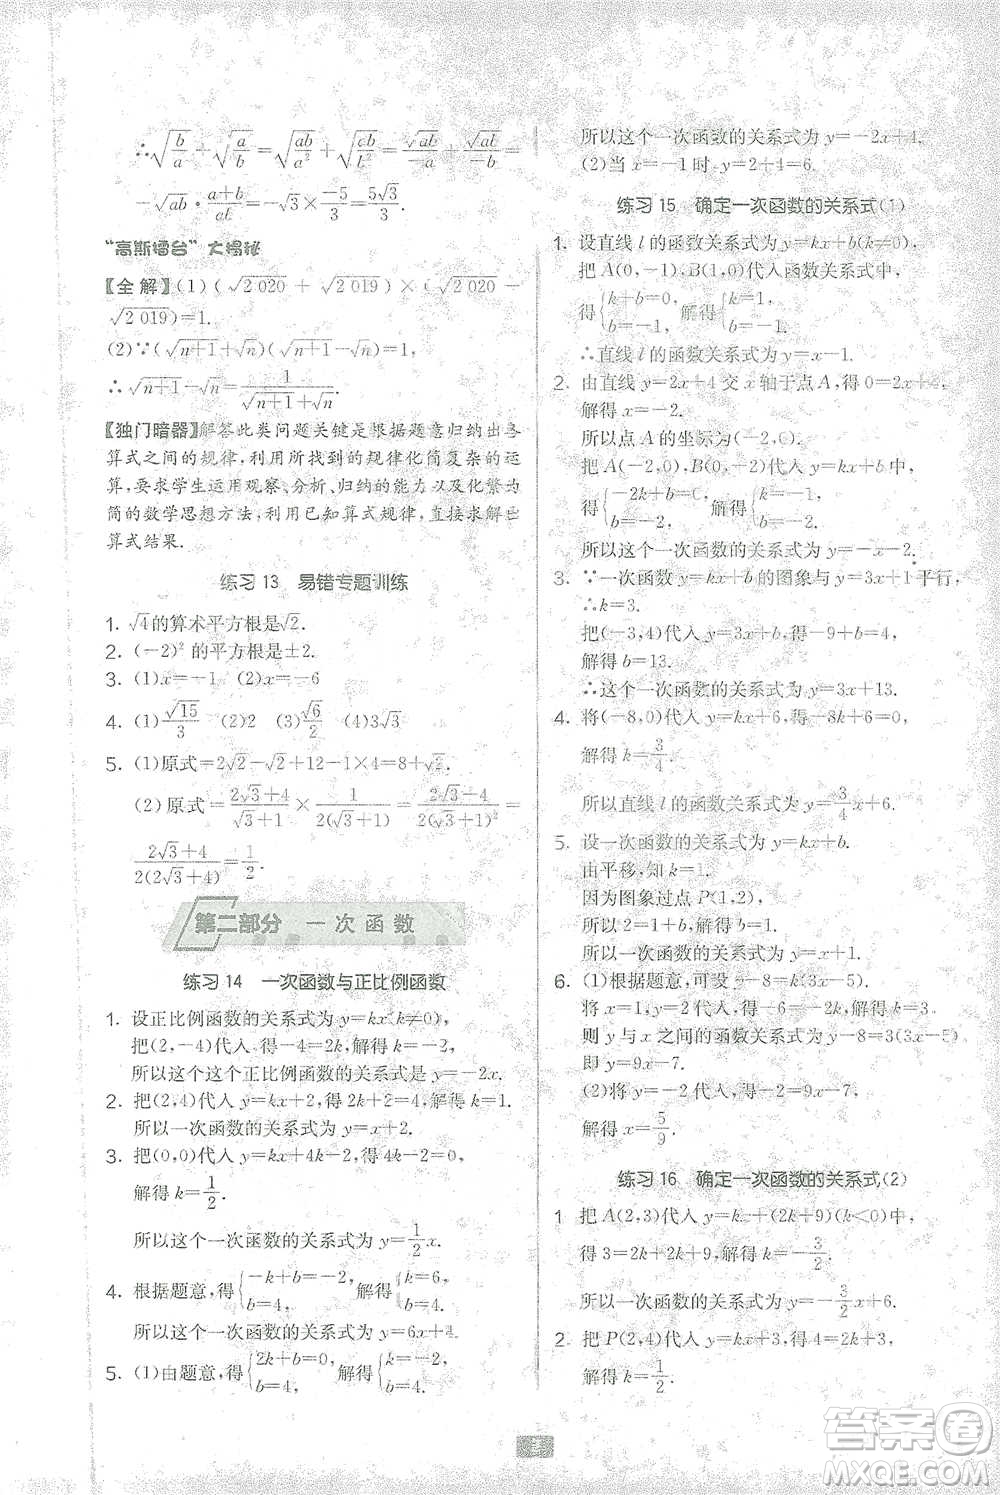 ∴√(b/a)+√(a/b)=√(ab/a²)+√(ab/b²)=√ab/−a+√ab/−b=
−√ab·(a+b)/ab=−√3×(−5)/3=5√3/3.
“高斯擂台”大揭秘
【全解】(1)(√2 020 + √2 019)×(√2 020 −
√2 019)=1.
(2)∵(√n+1+√n)(√n+1−√n)=1,
∴√n+1−√n=1/(√n+1+√n).
【独门暗器】解答此类问题关键是根据题意归纳出各
算式之间的规律,利用所找到的规律化简复杂的运
算,要求学生运用观察、分析、归纳的能力以及化繁为
简的数学思想方法,利用已知算式规律,直接求解出
算式结果.
练习 13 易错专题训练
1. √4的算术平方根是√2.
2. (−2)² 的平方根是±2.
3. (1)x=−1 (2)x=−6
4. (1)√15/3 (2)2 (3)√6/2 (4)3√3
5. (1)原式=2√2−√2+12−1×4=8+√2.
(2)原式=(2√3+4)/(√3+1)×1/(2(√3+1))=(2√3+4)/(2(√3+1)²)=
(2√3+4)/(2(2√3+4))=1/2.
第二部分 一次函数
练习 14 一次函数与正比例函数
1. 设正比例函数的关系式为 y=kx(k≠0),
把(2,−4)代入,得−4=2k,解得 k=−2,
所以这个这个正比例函数的关系式是 y=−2x.
2. 把(2,4)代入 y=kx+2,得 2k+2=4,解得 k=1.
所以一次函数的关系式为 y=x+2.
3. 把(0,0)代入 y=kx+4k−2,得 4k−2=0,
解得 k=1/2.
所以这个一次函数的关系式为 y=1/2 x.
4. 根据题意,得{−k+b=−2, b=4, 解得{k=6, b=4,
所以这个一次函数的关系式为 y=6x+4.
5. (1)由题意,得{2k+b=0, b=4, 解得{k=−2, b=4,
所以这个一次函数的关系式为 y=−2x+4.
(2)当 x=−1 时,y=2+4=6.
练习 15 确定一次函数的关系式(1)
1. 设直线 l 的函数关系式为 y=kx+b(k≠0),
把 A(0,−1)、B(1,0)代入函数关系式,
得{k+b=0, b=−1, 解得{k=1, b=−1.
∴直线 l 的函数关系式为 y=x−1.
2. 由直线 y=2x+4 交 x 轴于点 A,得 0=2x+4,
解得 x=−2,
所以点 A 的坐标为(−2,0).
把 A(−2,0),B(0,−2)代入 y=kx+b,
得{−2k+b=0, b=−2, 解得{k=−1, b=−2,
所以这个一次函数的关系式为 y=−x−2.
3. ∵一次函数 y=kx+b 的图象与 y=3x+1 平行,
∴k=3.
把(−3,4)代入 y=3x+b,得−9+b=4,
解得 b=13.
∴这个一次函数的关系式为 y=3x+13.
4. 将(−8,0)代入 y=kx+6,得−8k+6=0,
解得 k=3/4.
所以直线 l 的函数关系式为 y=3/4 x+6.
5. 设一次函数的关系式为 y=kx+b.
由平移,知 k=1.
因为图象过点 P(1,2),
所以 2=1+b,所以 b=1.
所以一次函数的关系式为 y=x+1.
6. (1)根据题意,可设 y−8=k(3x−5).
将 x=1,y=2 代入,得 2−8=−2k,解得 k=3.
则 y 与 x 之间的函数关系式为 y−8=3(3x−5),
即 y=9x−7.
(2)将 y=−2 代入,得−2=9x−7,
解得 x=5/9.
练习 16 确定一次函数的关系式(2)
1 把 A(2,3)代入 y=kx+(2k+9)(k<0)中,
得 3=2k+2k+9,解得 k=−3/2.
所以一次函数的关系式为 y=−3/2 x+6.
2. 把 P(2,4)代入 y=kx+3,得 4=2k+3,
解得 k=1/2.
答案圈
MXQE.COM